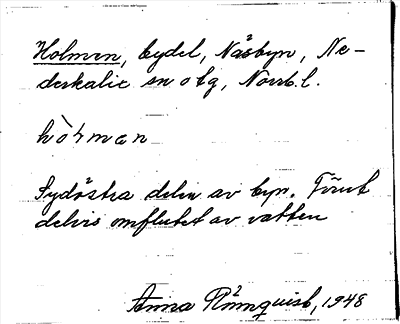 Holmen, bydel, Näsbyn, Ne-
derkalix sn o tg, Norrb. l.
hòɫmæn
Sydöstra delen av byn. Förut
delvis omflutet av vatten
Anna Rönnquist, 1948